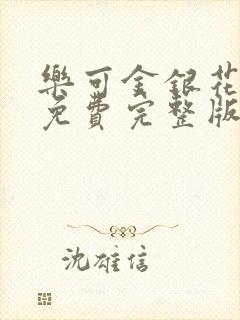 樂可金銀花
免費完整版
沈雄信